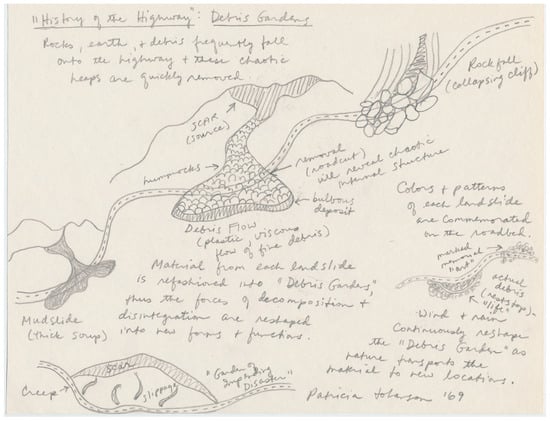 "History of the Highway": Debris Gardens
Rocks, earth, + debris frequently fall
onto the highway + these chaotic
heaps are quickly removed.
Rockfall
(collapsing cliff)
SCAR
(source)
hummocks
removal
(roadcut)
will reveal chaotic
internal structure
bulbous
deposit
Debris Flow
(plastic, viscous
flow of fine debris)
Colors + patterns
of each landslide
are commemorated
on the roadbed.
marked
memorial
"art"
actual
debris
(reststop)
"life"
Mudslide
(thick soup)
Material from each landslide
is refashioned into "Debris Gardens,"
thus the forces of decomposition +
disintegration are reshaped
into new forms + functions.
Wind + rain
continuously reshape
the "Debris Garden" as
nature transports the
material to new locations.
Creep
Scar
slippage
"Garden of
Impending
Disaster"
Patricia Johanson '69